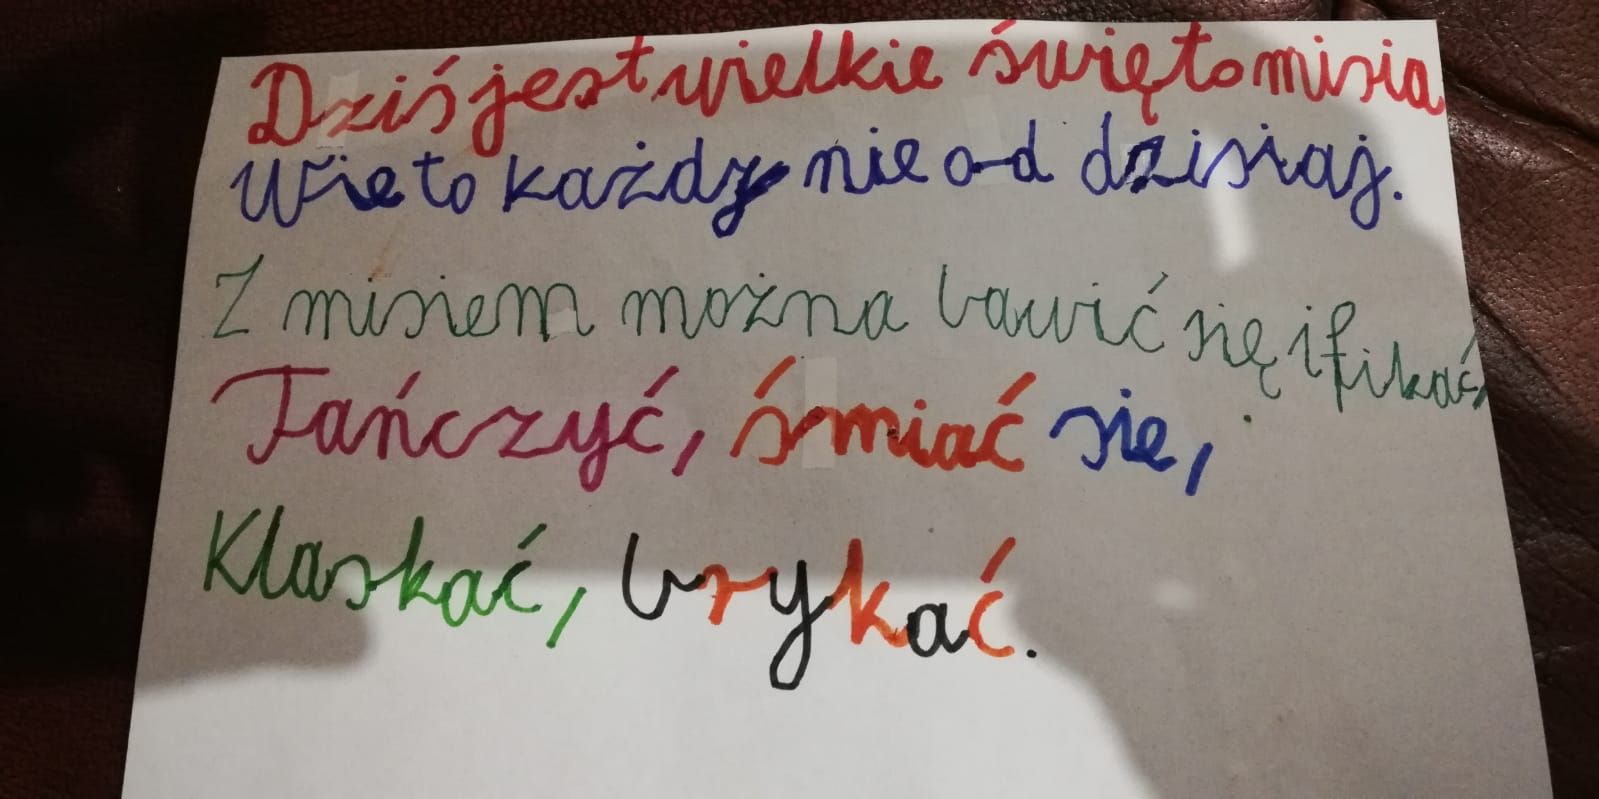 Dziś jest wielkie święto misia
Wie to każdy nie od dzisiaj.
Z misiem można bawić się i fikać,
Tańczyć, śmiać się,
Klaskać, brykać.